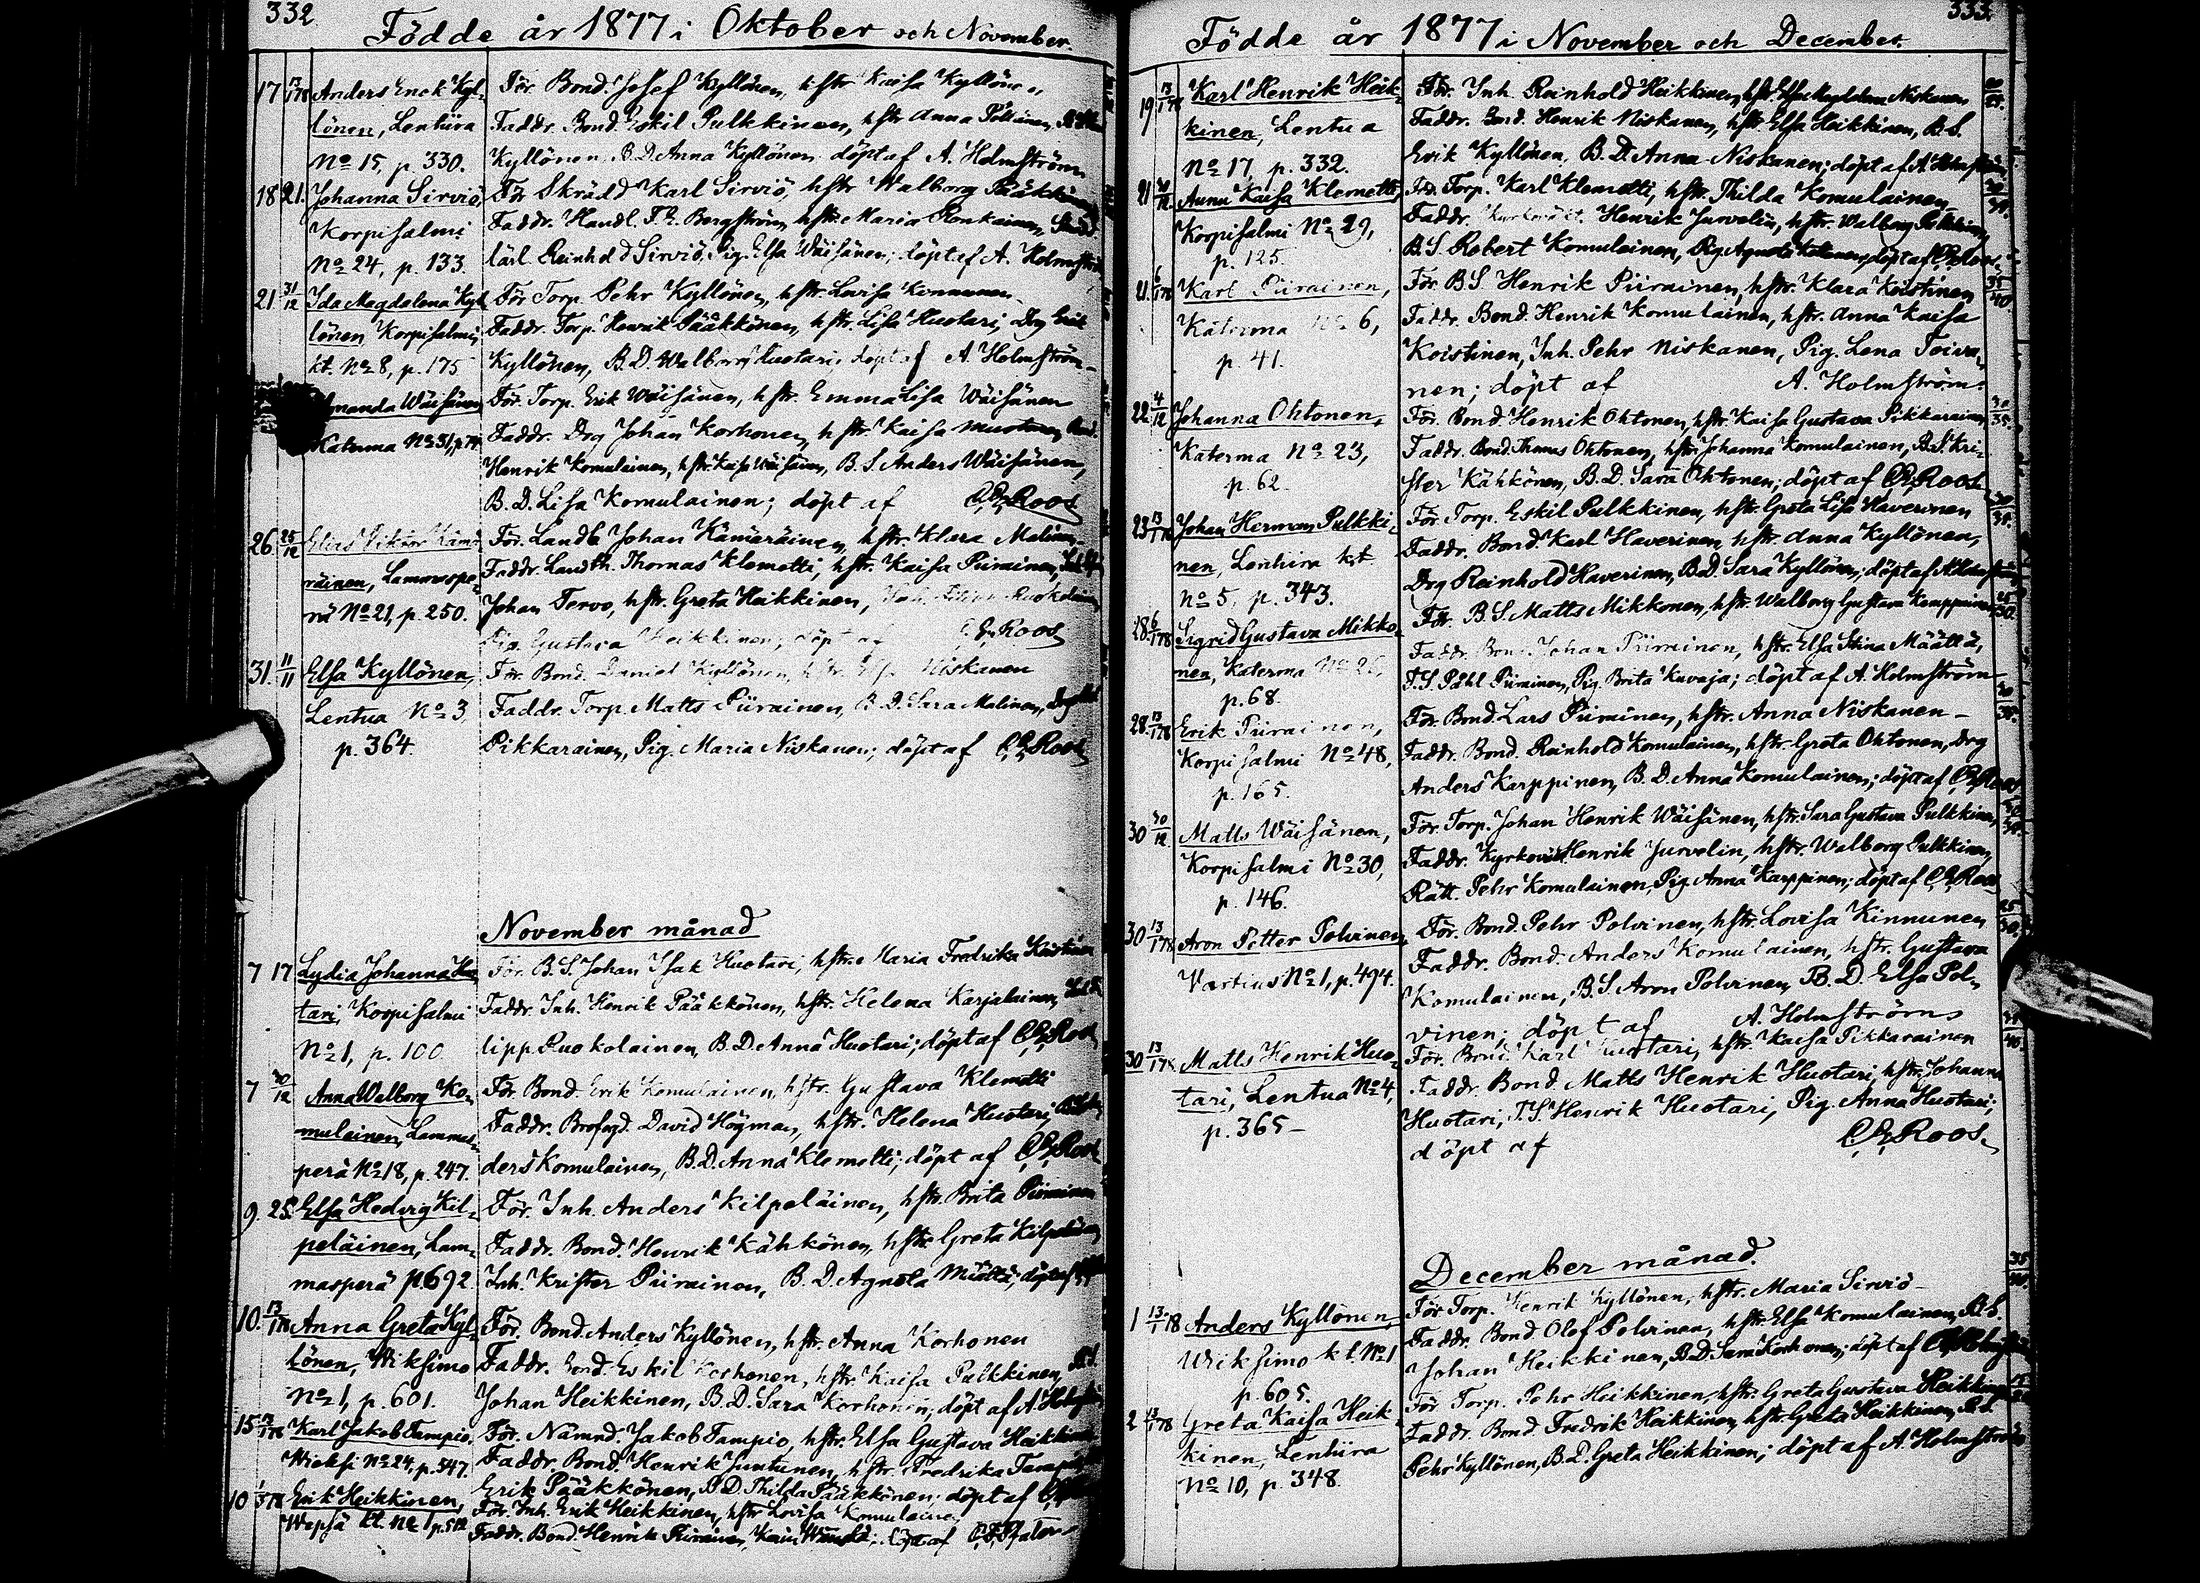 332
Födde år 1877 i Oktober och November.
17 13/1 78 Anders Enok Kyl-
lönen, Lentiira
No 15, p. 330.
För. Bond. Josef Kyllönen, hstr. Kaisa Kyllönen
Faddr. Bond. Eskil Pulkkinen, hstr. Anna
Kyllönen, B.D. Anna Kyllönen; döpt af A. Holmström
18 21. Johanna Sirviö,
Korpisalmi
No 24, p. 133.
För Skrädd. Karl Sirviö, hstr. Walborg Pääkkönen
Faddr. Handl. Bergström, hstr. Maria Ronkainen,
lärl. Reinhold Sirviö, Pig. Elsa Wäisänen; döpt af A. Holmström
21. 31/12 Ida Magdalena Kyl-
lönen, Korpisalmi,
kt. No 8, p. 175
För Torp. Pehr Kyllönen, hstr. Lovisa
Faddr. Torp. Henrik Pääkkönen, hstr. Lisa Huotari, Drg Erik
Kyllönen, B.D. Walborg Huotari; döpt af A. Holmström
Amanda Wäisänen
Katerma No 31,
För. Torp. Erik Wäisänen, hstr. Emma Lisa Wäisänen
Faddr. Drg Johan Korhonen, hstr. Kaisa
Henrik Komulainen, hstr. Kaisa Wäisänen, B.S. Anders Wäisänen,
B.D. Lisa Komulainen; döpt af Roos
26. 25/12 Elias Viktor Kämä-
räinen, Lammaspe-
rä No 21, p. 250.
För. Landb. Johan Kämäräinen, hstr. Klara Malinen
Faddr. Landb. Thomas Klemetti, hstr. Kaisa Piirainen,
Johan Tervo, hstr. Greta Heikkinen,
Pig. Gustava Heikkinen; döpt af Roos
31. 11/11 Elsa Kyllönen,
Lentua No 3,
p. 364.
För Bond. Daniel Kyllönen, hstr. Niskanen
Faddr. Torp. Matts Piirainen, B.D. Sara Malinen, Drg
Pikkarainen, Pig. Maria Niskanen; döpt af Roos
November månad
7 17 Lydia Johanna Huo-
tari, Korpisalmi
No 1, p. 100
För. B.S. Johan Isak Huotari, hstr. Maria Fredrika
Faddr. Inh. Henrik Pääkkönen, hstr. Helena Karjalainen,
lipp Ruokolainen, B.D. Anna Huotari; döpt af Roos
7 30/12 Anna Walborg Ko-
mulainen, Lammas-
perä No 18, p. 247.
För Bond. Erik Komulainen, hstr. Gustava Klemetti
Faddr. Brofogd. David Högman, hstr. Helena Huotari,
ders Komulainen, B.D. Anna Klemetti; döpt af Roos
9. 25. Elsa Hedvig Kil-
peläinen, Lam-
masperä p. 692.
För. Inh. Anders Kilpeläinen, hstr. Brita Piirainen
Faddr. Bond. Henrik Kähkönen, hstr. Greta Kilpeläinen,
Inh. Krister Piirainen, B.D. Agneta Määttä; döpt af
10. 13/1 78 Anna Greta Kyl-
lönen, Wiksimo
No 1, p. 601.
För. Bond. Anders Kyllönen, hstr. Anna Korhonen
Faddr. Bond. Eskil Korhonen, hstr. Kaisa Pulkkinen, B.S.
Johan Heikkinen, B.D. Sara Korhonen; döpt af A. Holmström
15 13/1 78 Karl Jakob Tampio,
Wieksi No 24, p. 547.
För. Nämnd. Jakob Tampio, hstr. Elsa Gustava Heikkinen
Faddr. Bond. Henrik Juntunen, hstr. Fredrika Tampio,
Erik Pääkkönen, B.D. Thilda Pääkkönen; döpt af
10 Erik Heikkinen,
Wepsä kt. No 1 p.
För. Inh. Erik Heikkinen, hstr. Lovisa Komulainen
Faddr. Bond. Henrik Piirainen, döpt af
333.
Födde år 1877 i November och December.
19 13/1 78 Karl Henrik Heik-
kinen, Lentua
No 17, p. 332.
För. Inh. Reinhold Heikkinen, hstr. Elsa Magdalena Niskanen
Faddr. Bond. Henrik Niskanen, hstr. Elsa Heikkinen, B.S.
Erik Kyllönen, B.D. Anna Niskanen; döpt af A. Holmström
21 30/12 Anna Kaisa Klemetti,
Korpisalmi No 29,
p. 125.
För. Torp. Karl Klemetti, hstr. Thilda Komulainen
Faddr. Henrik Jurvelin, hstr. Walborg Pulkkinen,
B.S. Robert Komulainen, Pig. Agneta döpt af Roos
21. 6/1 78 Karl Piirainen,
Katerma No 6,
p. 41.
För. B.S. Henrik Piirainen, hstr. Klara Koistinen
Faddr. Bond. Henrik Komulainen, hstr. Anna Kaisa
Koistinen, Inh. Pehr Niskanen, Pig. Lena Toiva-
nen; döpt af A. Holmström
22 4/12 Johanna Ohtonen,
Katerma No 23,
p. 62.
För. Bond. Henrik Ohtonen, hstr. Kaisa Gustava Pikkarainen
Faddr. Bond. Thomas Ohtonen, hstr. Johanna Komulainen, B.S. Kri-
ster Kähkönen, B.D. Sara Ohtonen; döpt af Roos
23 13/1 78 Johan Herman Pulkki-
nen, Lentiira kt
No 5, p. 343.
För. Torp. Eskil Pulkkinen, hstr. Greta Lisa Haverinen
Faddr. Bond. Karl Haverinen, hstr. Anna Kyllönen,
Drg Reinhold Haverinen, B.D. Sara Kyllönen; döpt af A. Holmström
28. 6/1 78 Sigrid Gustava Mikko-
nen, Katerma No 26,
p. 68.
För. B.S. Matts Mikkonen, hstr. Walborg Gustava Kemppainen
Faddr. Bond. Johan Piirainen, hstr. Elsa Stina Määttä,
T.S. Påhl Piirainen, Pig. Brita Kuvaja; döpt af A. Holmström
28. 13/1 78 Erik Piirainen,
Korpisalmi No 48,
p. 165.
För. Bond. Lars Piirainen, hstr. Anna Niskanen
Faddr. Bond. Reinhold Komulainen, hstr. Greta Ohtonen, Drg
Anders Karppinen, B.D. Anna Komulainen; döpt af Roos
30 30/12 Matts Wäisänen,
Korpisalmi No 30,
p. 146.
För. Torp. Johan Henrik Wäisänen, hstr. Sara Gustava Pulkkinen,
Faddr. Kyrkov. Henrik Jurvelin, hstr. Walborg Pulkkinen,
Rätt. Pehr Komulainen, Pig. Anna Karppinen; döpt af Roos
30 13/1 78 Aron Petter Polvinen,
Vartius No 1, p. 494.
För. Bond. Pehr Polvinen, hstr. Lovisa Kinnunen
Faddr. Bond. Anders Komulainen, hstr. Gustava
Komulainen, B.S. Aron Polvinen, B.D. Elsa Pol-
vinen; döpt af A. Holmström
30 13/1 78 Matts Henrik Huo-
tari, Lentua No 4,
p. 365
För. Bond. Karl Huotari, hstr. Kaisa Pikkarainen
Faddr. Bond. Matts Henrik Huotari, hstr. Johanna
Huotari, T.S. Henrik Huotari, Pig. Anna Huotari;
döpt af Roos
December månad.
1 13/1 78 Anders Kyllönen,
Wiksimo kt. No 1
p. 605.
För Torp. Henrik Kyllönen, hstr. Maria Sirviö
Faddr. Bond. Olof Polvinen, hstr. Elsa Komulainen, B.S.
Johan Heikkinen, B.D. Sara Korhonen; döpt af A. Holmström
2 13/1 78 Greta Kaisa Heik-
kinen, Lentiira
No 10, p. 348.
För Torp. Pehr Heikkinen, hstr. Greta Gustava Heikkinen
Faddr. Bond. Fredrik Heikkinen, hstr. Greta Heikkinen, B.S.
Pehr Kyllönen, B.D. Greta Heikkinen; döpt af A. Holmström